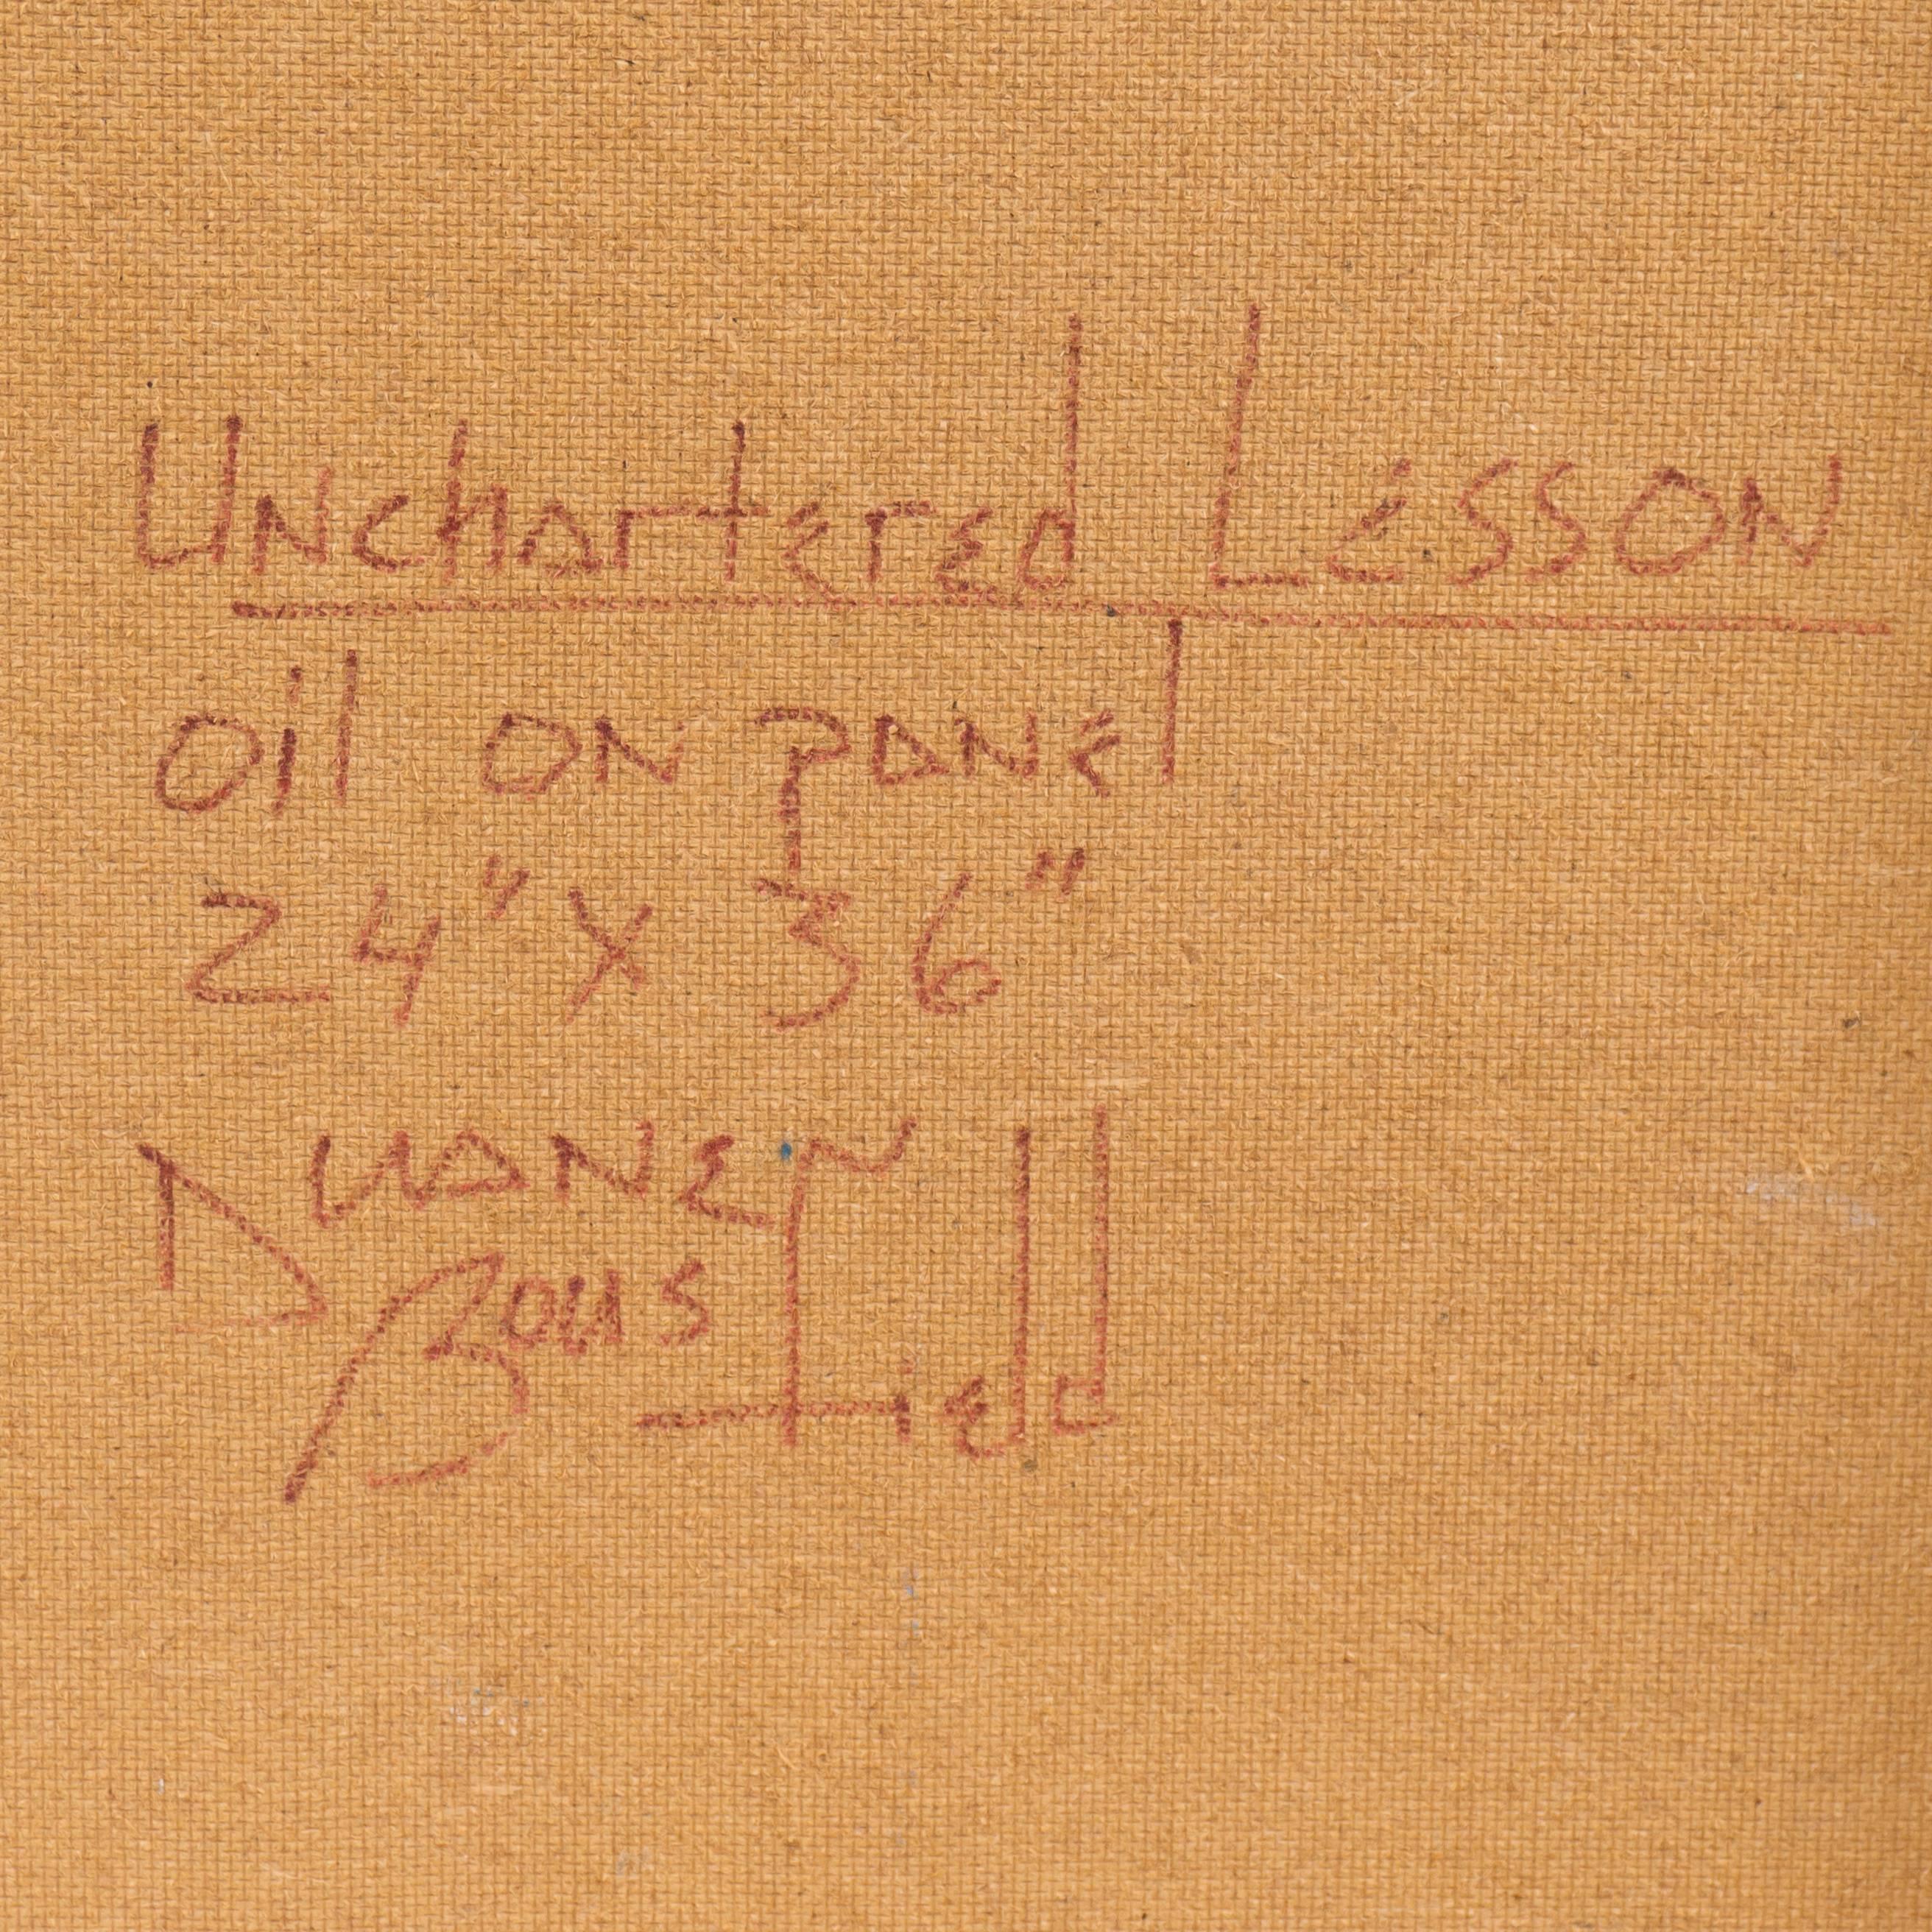 Unchartered Lesson
oil on panel
24" X 36"
Duane
Bousfield